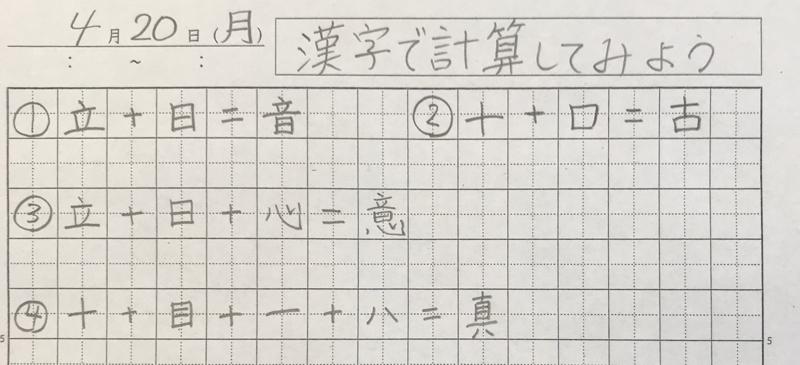 4月20日(月)
: ~ :
漢字で計算してみよう
① 立+日=音 ② 十+口=古
③ 立+日+心=意
④ 十+目+一+八=真
5 5